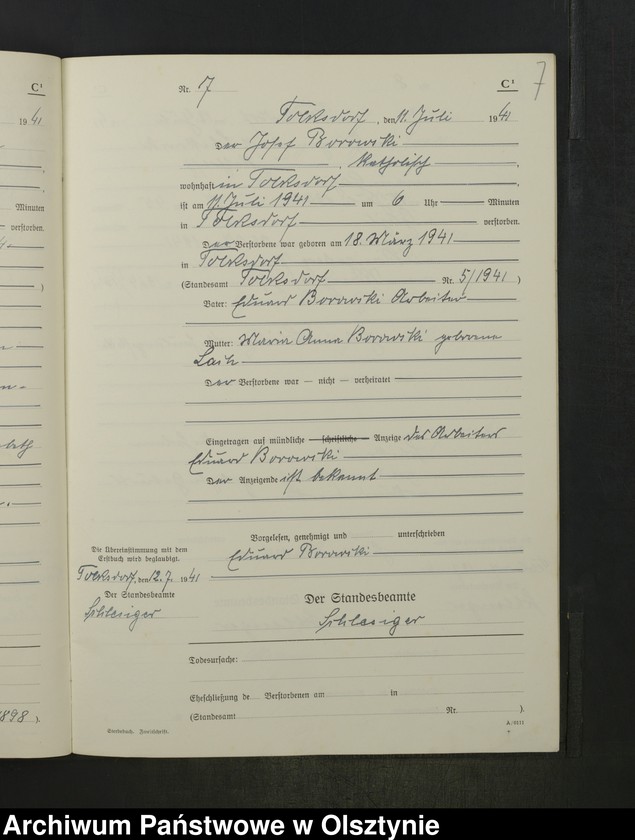 C¹
1941
Minuten
verstorben.
)
1898 ).
7
C¹
Nr. 7
Tolksdorf, den 11. Juli 1941
Der Josef Borowski
, katholisch ,
wohnhaft in Tolksdorf ,
ist am 11. Juli 1941 um 6 Uhr Minuten
in Tolksdorf verstorben.
Der Verstorbene war geboren am 18. März 1941
in Tolksdorf
(Standesamt Tolksdorf Nr. 5/1941 )
Vater: Eduard Borowski Arbeiter
Mutter: Maria Anna Borowski geborene
Der Verstorbene war — nicht — verheiratet
Eingetragen auf mündliche — schriftliche — Anzeige des Arbeiters
Eduard Borowski
Der Anzeigende ist bekannt
Vorgelesen, genehmigt und unterschrieben
Eduard Borowski
Die Übereinstimmung mit dem
Erstbuch wird beglaubigt.
Tolksdorf, den 12. 7. 1941
Der Standesbeamte
Schlesiger
Der Standesbeamte
Schlesiger
Todesursache:
Eheschließung de Verstorbenen am in
(Standesamt Nr. ).
Sterbebuch. Zweitschrift.
Archiwum Państwowe w Olsztynie